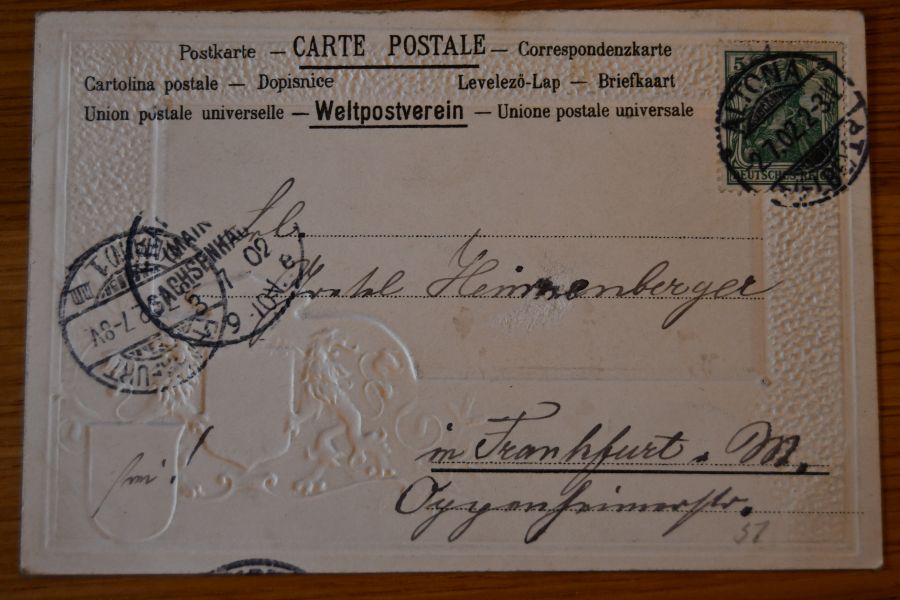 Postkarte — CARTE POSTALE — Correspondenzkarte
Cartolina postale — Dopisnice Levelező-Lap — Briefkaart
Union postale universelle — Weltpostverein — Unione postale universale
ALTONA
2.7.02.2-3N
DEUTSCHES REICH
5
MAIN
SACHSENHAU
3 7 02
7-8V
Frl.
Heimenberger
in Frankfurt a. M.
Oppenheimerstr.
51